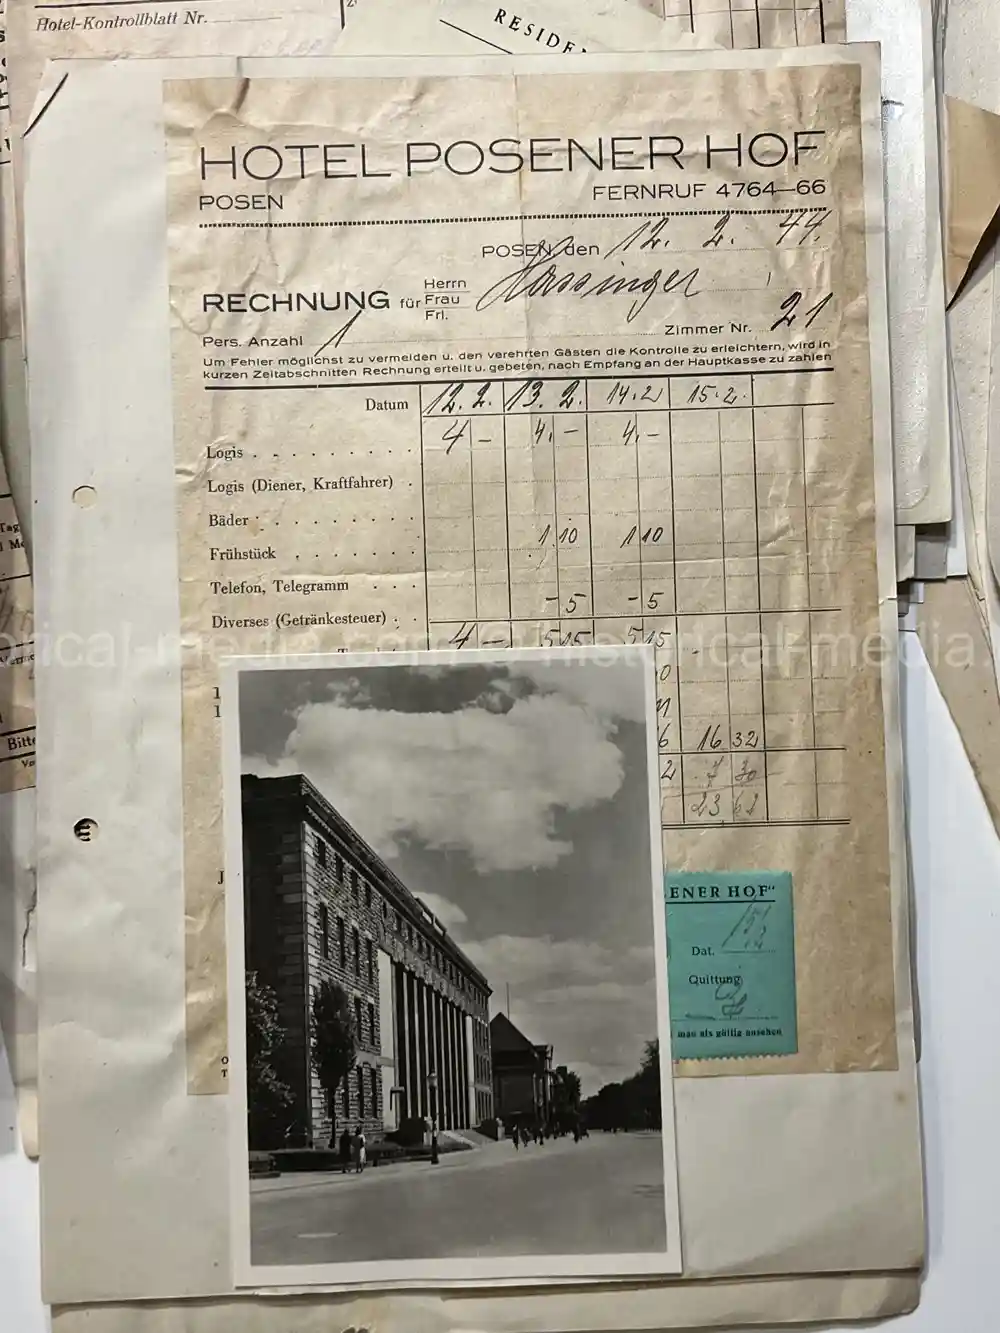 Hotel-Kontrollblatt Nr.
HOTEL POSENER HOF
POSEN
FERNRUF 4764—66
POSEN, den 12. 2. 44.
RECHNUNG für Herrn Frau Frl. Hassinger
Pers. Anzahl 1
Zimmer Nr. 21
Um Fehler möglichst zu vermeiden u. den verehrten Gästen die Kontrolle zu erleichtern, wird in
kurzen Zeitabschnitten Rechnung erteilt u. gebeten, nach Empfang an der Hauptkasse zu zahlen
Datum 12. 2. 13. 2. 14.2 15.2.
Logis . . . . . . . . . 4 - 4.- 4.-
Logis (Diener, Kraftfahrer) .
Bäder . . . . . . . . .
Frühstück . . . . . . . 1 10 1 10
Telefon, Telegramm . . .
Diverses (Getränkesteuer) . . - 5 - 5
4 - 5 15 5 15
16 32
7 30
23 62
ENER HOF“
Dat. 15/2
Quittung
man als gültig ansehen
Bitte